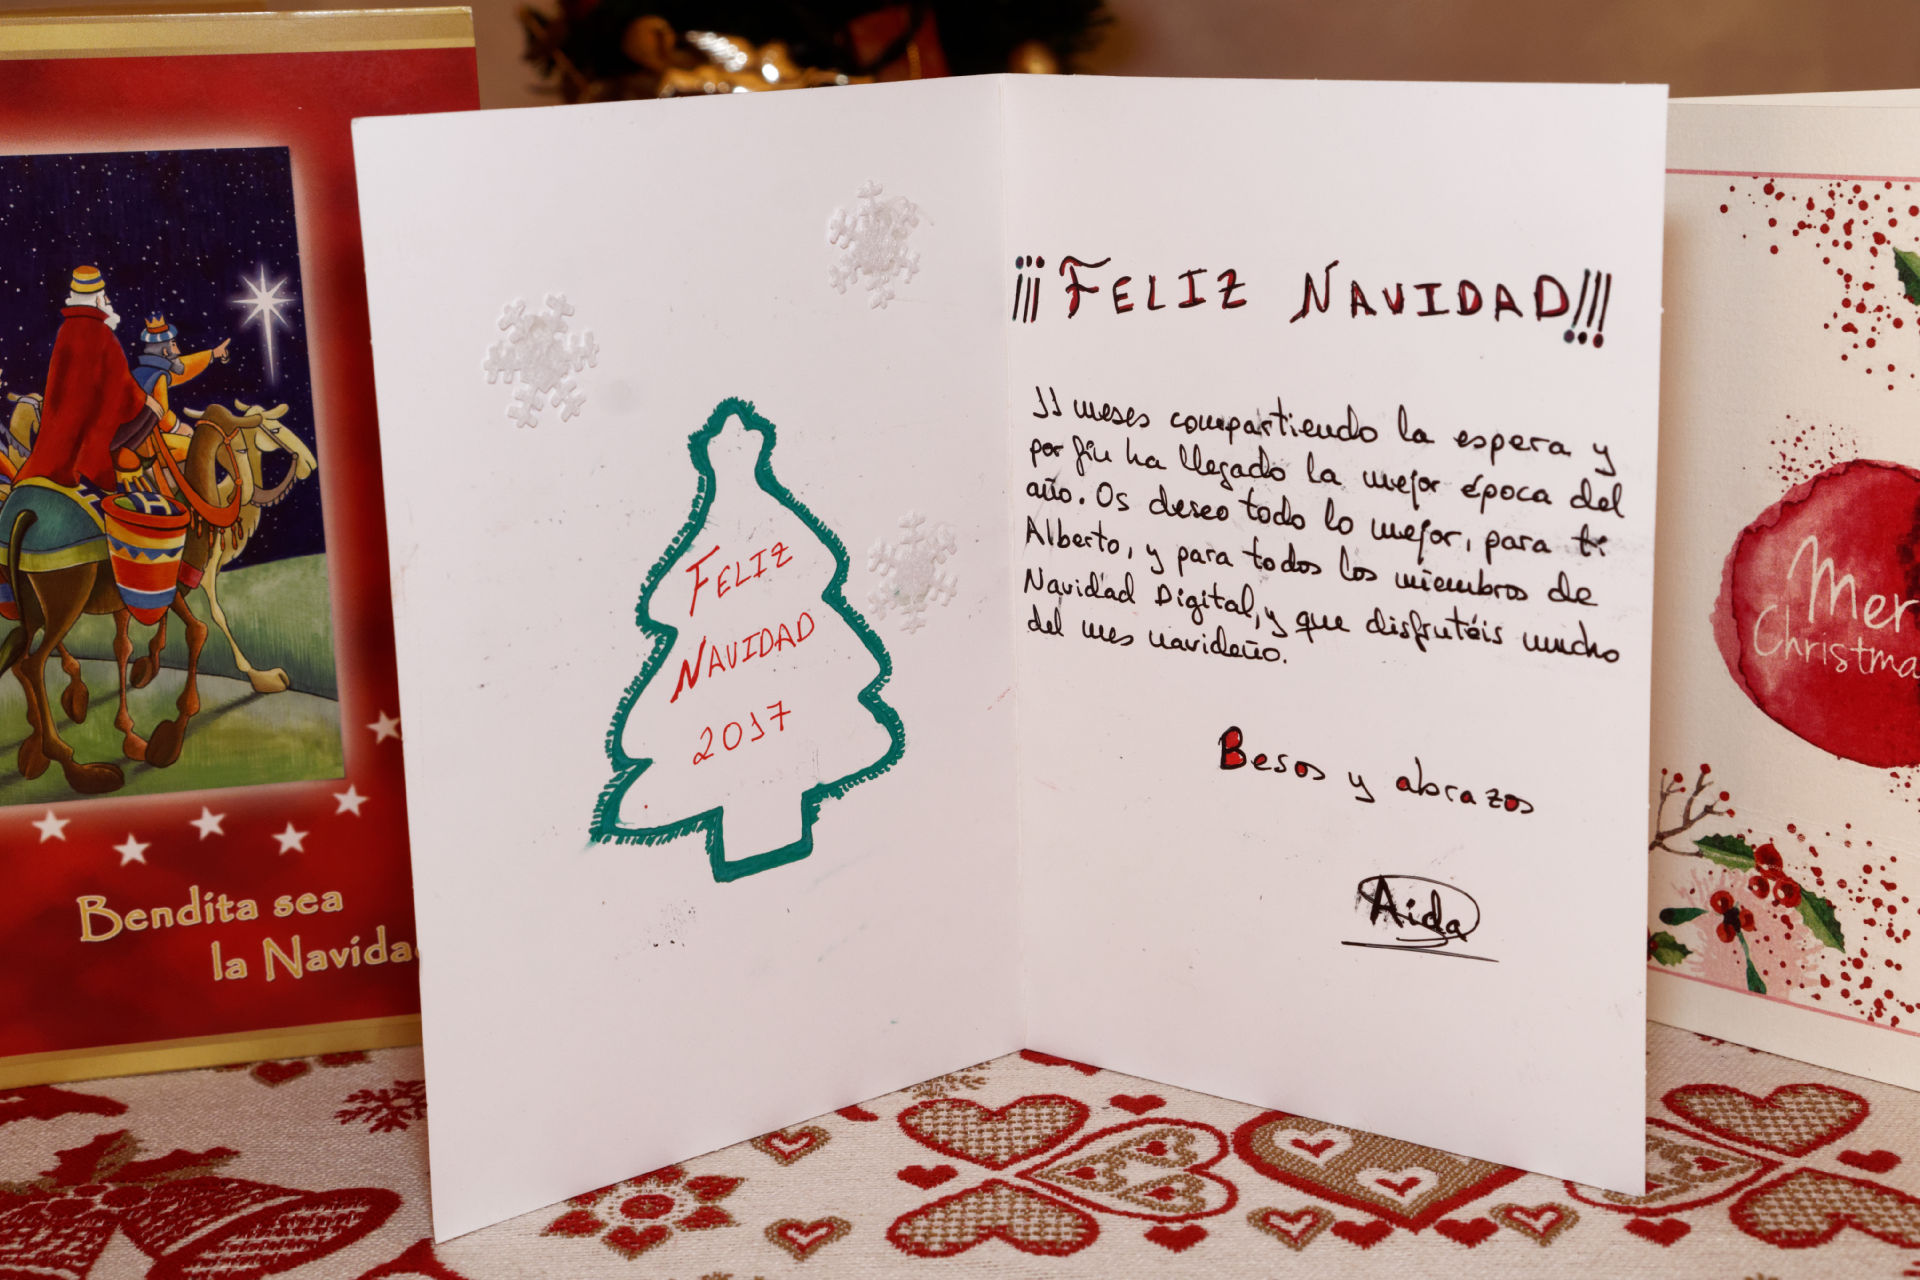 Bendita sea
la Navida
FELIZ
NAVIDAD
2017
¡¡¡FELIZ NAVIDAD!!!
11 meses compartiendo la espera y
por fin ha llegado la mejor época del
año. Os deseo todo lo mejor, para ti
Alberto, y para todos los miembros de
Navidad Digital, y que disfrutéis mucho
del mes navideño.
Besos y abrazos
Aida
Mer
Christma